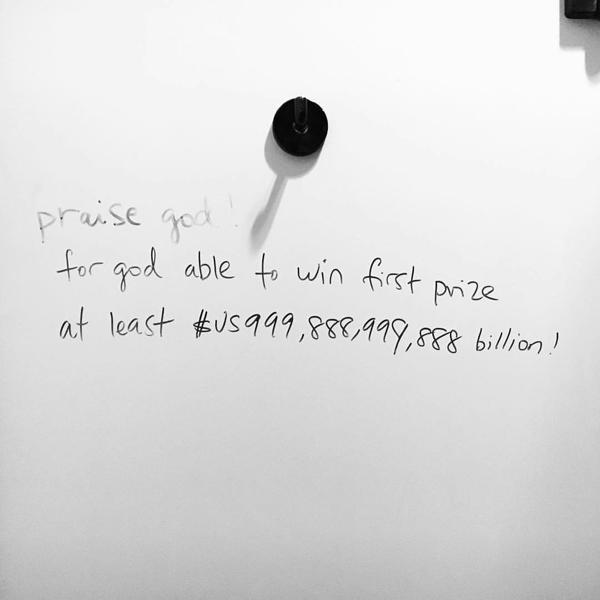 praise god!
for god able to win first prize
at least $US999,888,999,888 billion!